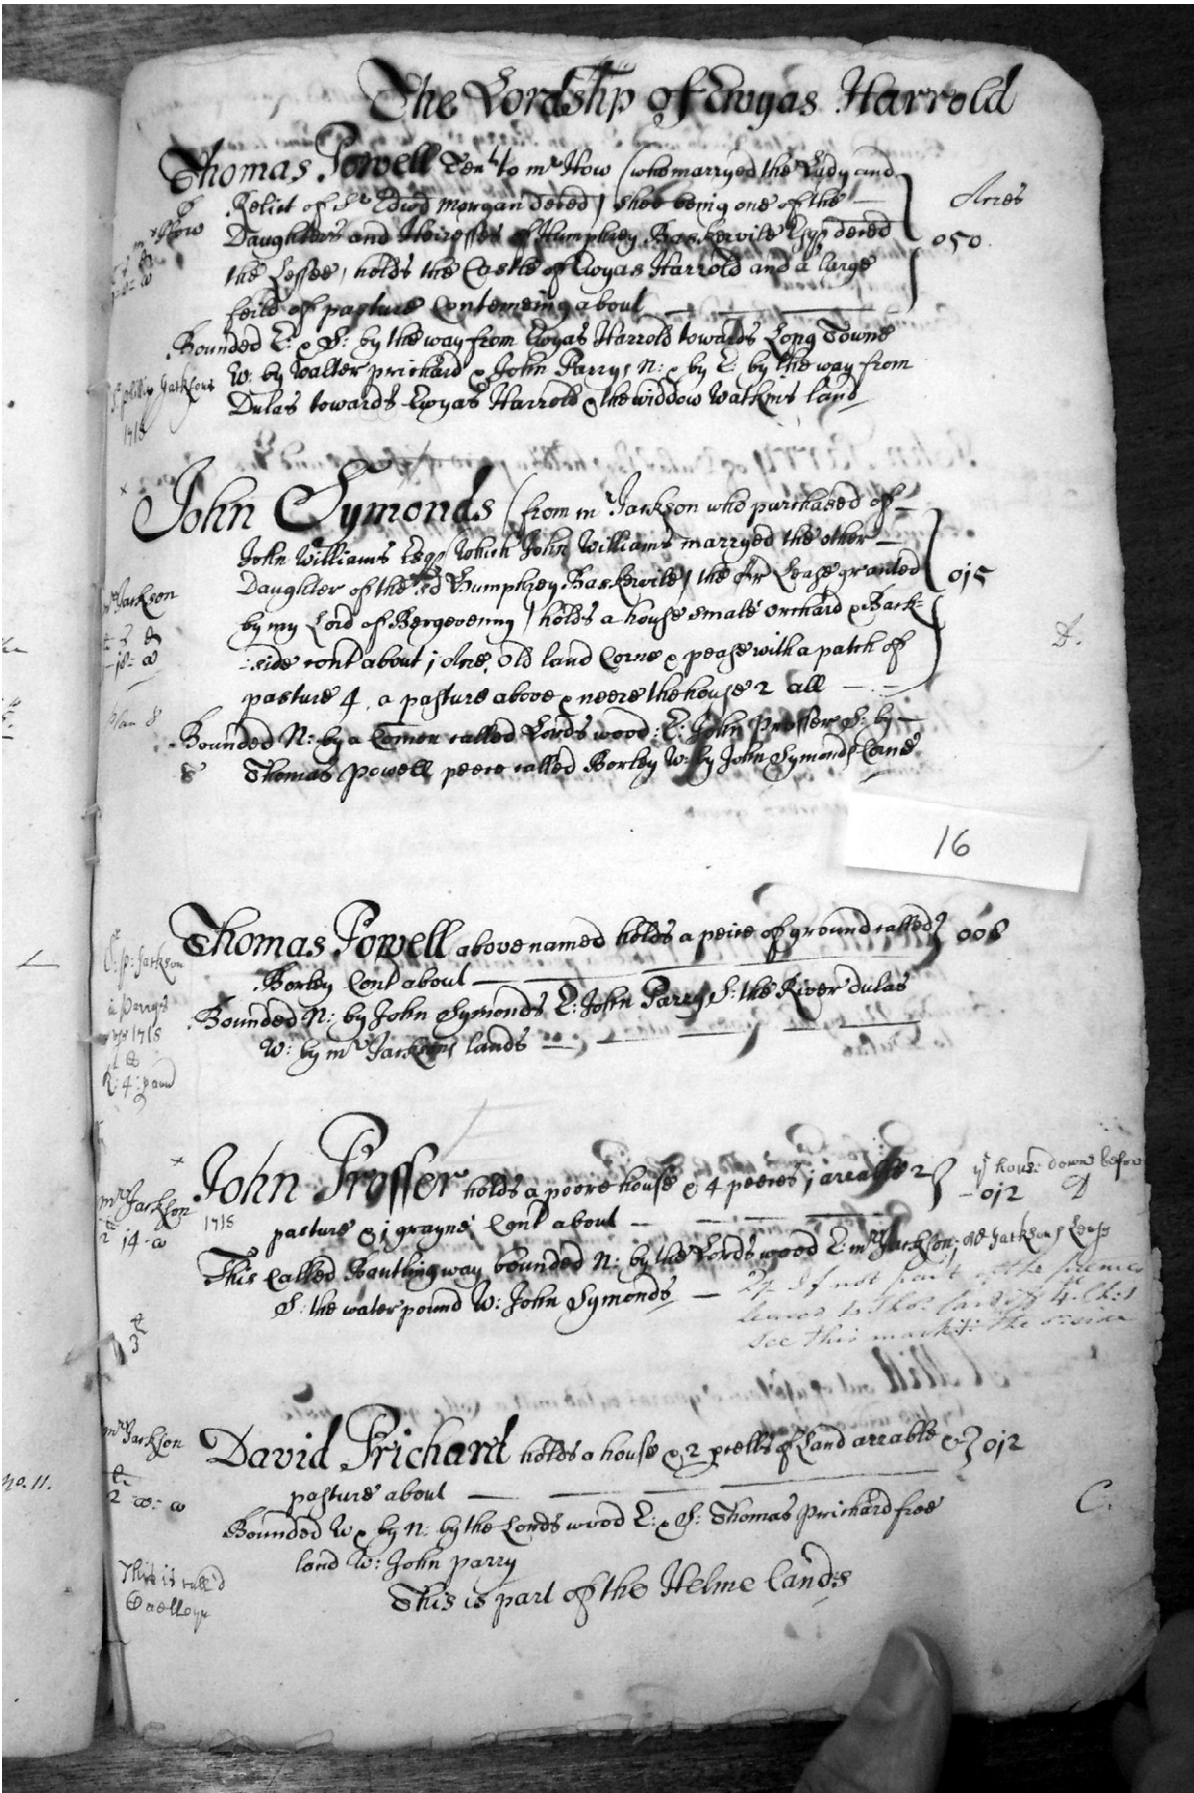 The Lordship of Ewyas Harrold
Thomas Powell Tent to mr How (who marryed the Lady and
Relict of Sr Edwd Morgan deced) shee being one of the
Daughters and Heiresses of Humphrey Baskervile Esqr deced
the Lessee, holds the Castle of Ewyas Harrold and a large
feild of pasture Conteineing about
Acres
050
mr How
Bounded E: & S: by the way from Ewyas Harrold towards Long Towne
W: by Walter prichard & John Parry, N: & by E: by the way from
Dulas towards Ewyas Harrold & the widdow Watkins land
phillip Jackson
1718
John Symonds (from mr Jackson who purchased of
John Williams Esqr which John Williams marryed the other
Daughter of the sd Humphrey Baskervile) the Lease granted
by my Lord of Bergevenny) holds a house smale Orchard & Back=
:side cont about 1 Acre, Old land Corne & pease with a patch of
pasture 4, a pasture above & neere the house 2 all
015
mr Jackson
D.
Bounded N: by a Comon called Lords wood: E: John Prosser S: by
Thomas Powell peece called Borley W: by John Symonds Lane
8
16
Thomas Powell above named holds a peice of ground called
Borley Cont about
008
Bounded N: by John Symonds E: John Parry S: the River dulas
W: by mr Jacksons lands
Jackson
1718
John Prosser holds a poore house & 4 peeces 1 areable 2
pasture & 1 grayne, Cont about
012
ye house down before
mr Jackson
14
1715
This Called Bantlingway bounded N: by the Lords wood E: mr Jackson; old Jacksons Leas
S: the water pound W: John Symonds
If not part of the
see this mark
3
David Prichard holds a house & 2 pcells of Land arrable &
pasture about
012
mr Jackson
2
no. 11.
C.
Bounded W & by N: by the Lords wood E: & S: Thomas prichard free
land W: John parry
This is part of the Helme Lands
This is call'd